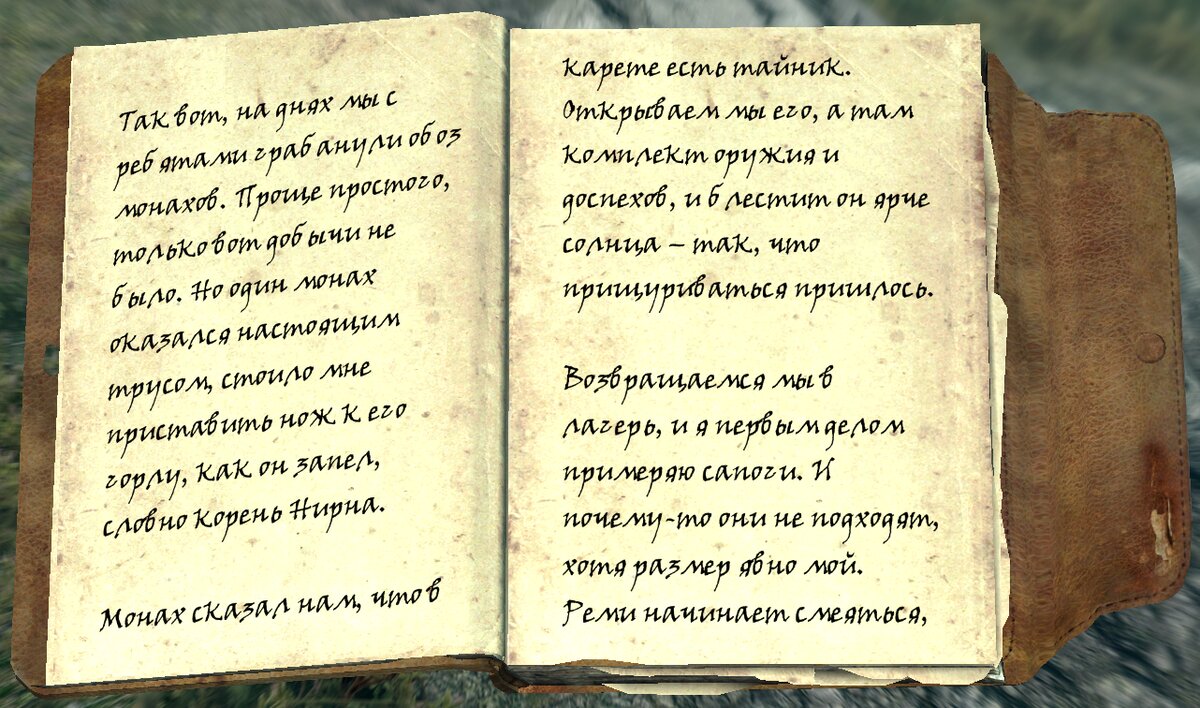 Так вот, на днях мы с
ребятами грабанули обоз
монахов. Проще простого,
только вот добычи не
было. Но один монах
оказался настоящим
трусом, стоило мне
приставить нож к его
горлу, как он запел,
словно корень Нирна.
Монах сказал нам, что в
карете есть тайник.
Открываем мы его, а там
комплект оружия и
доспехов, и блестит он ярче
солнца – так, что
прищуриваться пришлось.
Возвращаемся мы в
лагерь, и я первым делом
примеряю сапоги. И
почему-то они не подходят,
хотя размер явно мой.
Реми начинает смеяться,